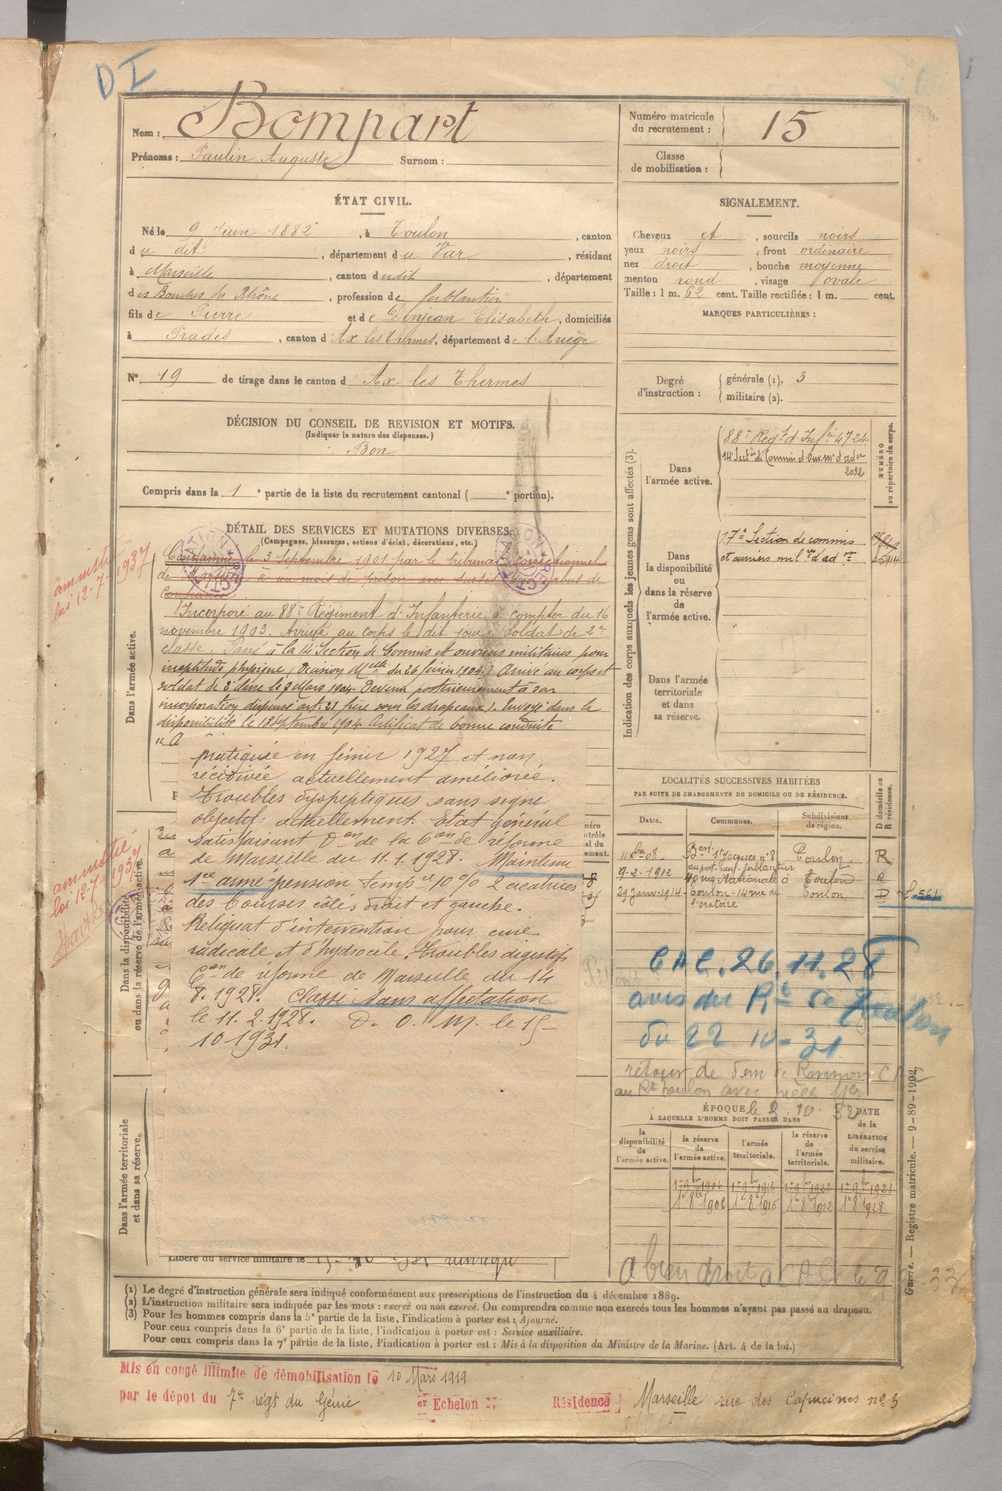 DI
Nom : Bompart
Prénoms : Paulin Auguste Surnom :
Numéro matricule du recrutement : 15
Classe de mobilisation :
ÉTAT CIVIL.
Né le 9 Juin 1882, à Toulon, canton
du dit, département du Var, résidant
à Marseille, canton dudit, département
des Bouches du Rhône, profession de ferblantier
fils de Pierre et de Denjean Elisabeth, domiciliés
à Prades, canton d'Ax les Thermes, département de l'Ariège
N° 19 de tirage dans le canton d'Ax les Thermes
SIGNALEMENT.
Cheveux et, sourcils noirs
yeux noirs, front ordinaire
nez droit, bouche moyenne
menton rond, visage ovale
Taille : 1 m. 62 cent. Taille rectifiée : 1 m. cent.
MARQUES PARTICULIÈRES :
Degré d'instruction : générale (1). 3
militaire (2).
DÉCISION DU CONSEIL DE REVISION ET MOTIFS.
(Indiquer la nature des dispenses.)
Bon
Compris dans la 1e partie de la liste du recrutement cantonal ( e portion).
DÉTAIL DES SERVICES ET MUTATIONS DIVERSES.
(Campagnes, blessures, actions d'éclat, décorations, etc.)
amnistié
loi 12-7-1937
Condamné le 3 Septembre 1901 par le tribunal correctionnel
de Toulon à un mois de prison avec sursis pour abus de
confiance
Dans l'armée active.
Incorporé au 88e Régiment d'Infanterie à compter du 16
novembre 1903. Arrivé au corps le dit jour. Soldat de 2e
classe. Passé à la 14e Section de Commis et ouvriers militaires pour
inaptitude physique (Décision Melle du 26 février 1904) Arrivé au corps et
soldat de 2e classe le 9 Mars 1904. Devenu postérieurement à son
incorporation dispensé art. 21 frère sous les drapeaux). Envoyé dans la
disponibilité le 18 Septembre 1904 Certificat de bonne conduite
pratiquée en février 1927 et non
récidivée actuellement améliorée.
Troubles dyspeptiques sans signe
objectif actuellement. Etat général
satisfaisant Don de la Con de réforme
de Marseille du 11.1.1928. Maintenu
1re armé pension tempre 10% 2 cicatrices
des bourses côtés droit et gauche.
Reliquat d'intervention pour cure
radicale et d'hydrocèle. Troubles digestifs
Con de réforme de Marseille du 14
8.1928. Classé sans affectation
le 11.2.1928. D. O. M. le 15-
10 1931.
amnistié
loi 12-7-1937
Dans la disponibilité
ou dans la réserve de l'armée active.
Dans l'armée territoriale
et dans sa réserve.
Libéré du service militaire le
Indication des corps auxquels les jeunes gens sont affectés (3).
Dans l'armée active.
88e Régt d'Infie 4724
14e Section de Commis et ouv. m. d'adon
2032
NUMÉRO au répertoire du corps.
Dans la disponibilité ou dans la réserve de l'armée active.
17e Section de commis
et ouvriers mil. d'adon
Dans l'armée territoriale et dans sa réserve.
LOCALITÉS SUCCESSIVES HABITÉES
PAR SUITE DE CHANGEMENTS DE DOMICILE OU DE RÉSIDENCE.
Dates. Communes. Subdivisions de région. D domicile ou R résidence.
St Jacques n° 8 Toulon R
9-2-1912 rue Nationale Toulon R
29 Janv. 1914 Toulon 14 rue de l'oratoire Toulon D
CAC. 26.11.28
avis du Rt de Toulon
du 22 10-31
retour de dem de
au Rt Toulon avec
le 2 10-32
ÉPOQUE
À LAQUELLE L'HOMME DOIT PASSER DANS
la disponibilité de l'armée active. la réserve de l'armée active. l'armée territoriale. la réserve de l'armée territoriale. DATE de la LIBÉRATION du service militaire.
1er 9bre 1906 1er 9bre 1916 1er 9bre 1922 1er 9bre 1928
1er 8bre 1906 1er 8bre 1916 1er 8bre 1922 1er 8bre 1928
a bien droit a CAC
Guerre. — Registre matricule. — 9-89-1902.
(1) Le degré d'instruction générale sera indiqué conformément aux prescriptions de l'instruction du 4 décembre 1889.
(2) L'instruction militaire sera indiquée par les mots : exercé ou non exercé. On comprendra comme non exercés tous les hommes n'ayant pas passé au drapeau.
(3) Pour les hommes compris dans la 5e partie de la liste, l'indication à porter est : Ajourné.
Pour ceux compris dans la 6e partie de la liste, l'indication à porter est : Service auxiliaire.
Pour ceux compris dans la 7e partie de la liste, l'indication à porter est : Mis à la disposition du Ministre de la Marine. (Art. 4 de la loi.)
Mis en congé illimité de démobilisation le 10 Mars 1919
par le dépôt du 7e régt du Génie Echelon Résidence Marseille rue des Capucines n° 3